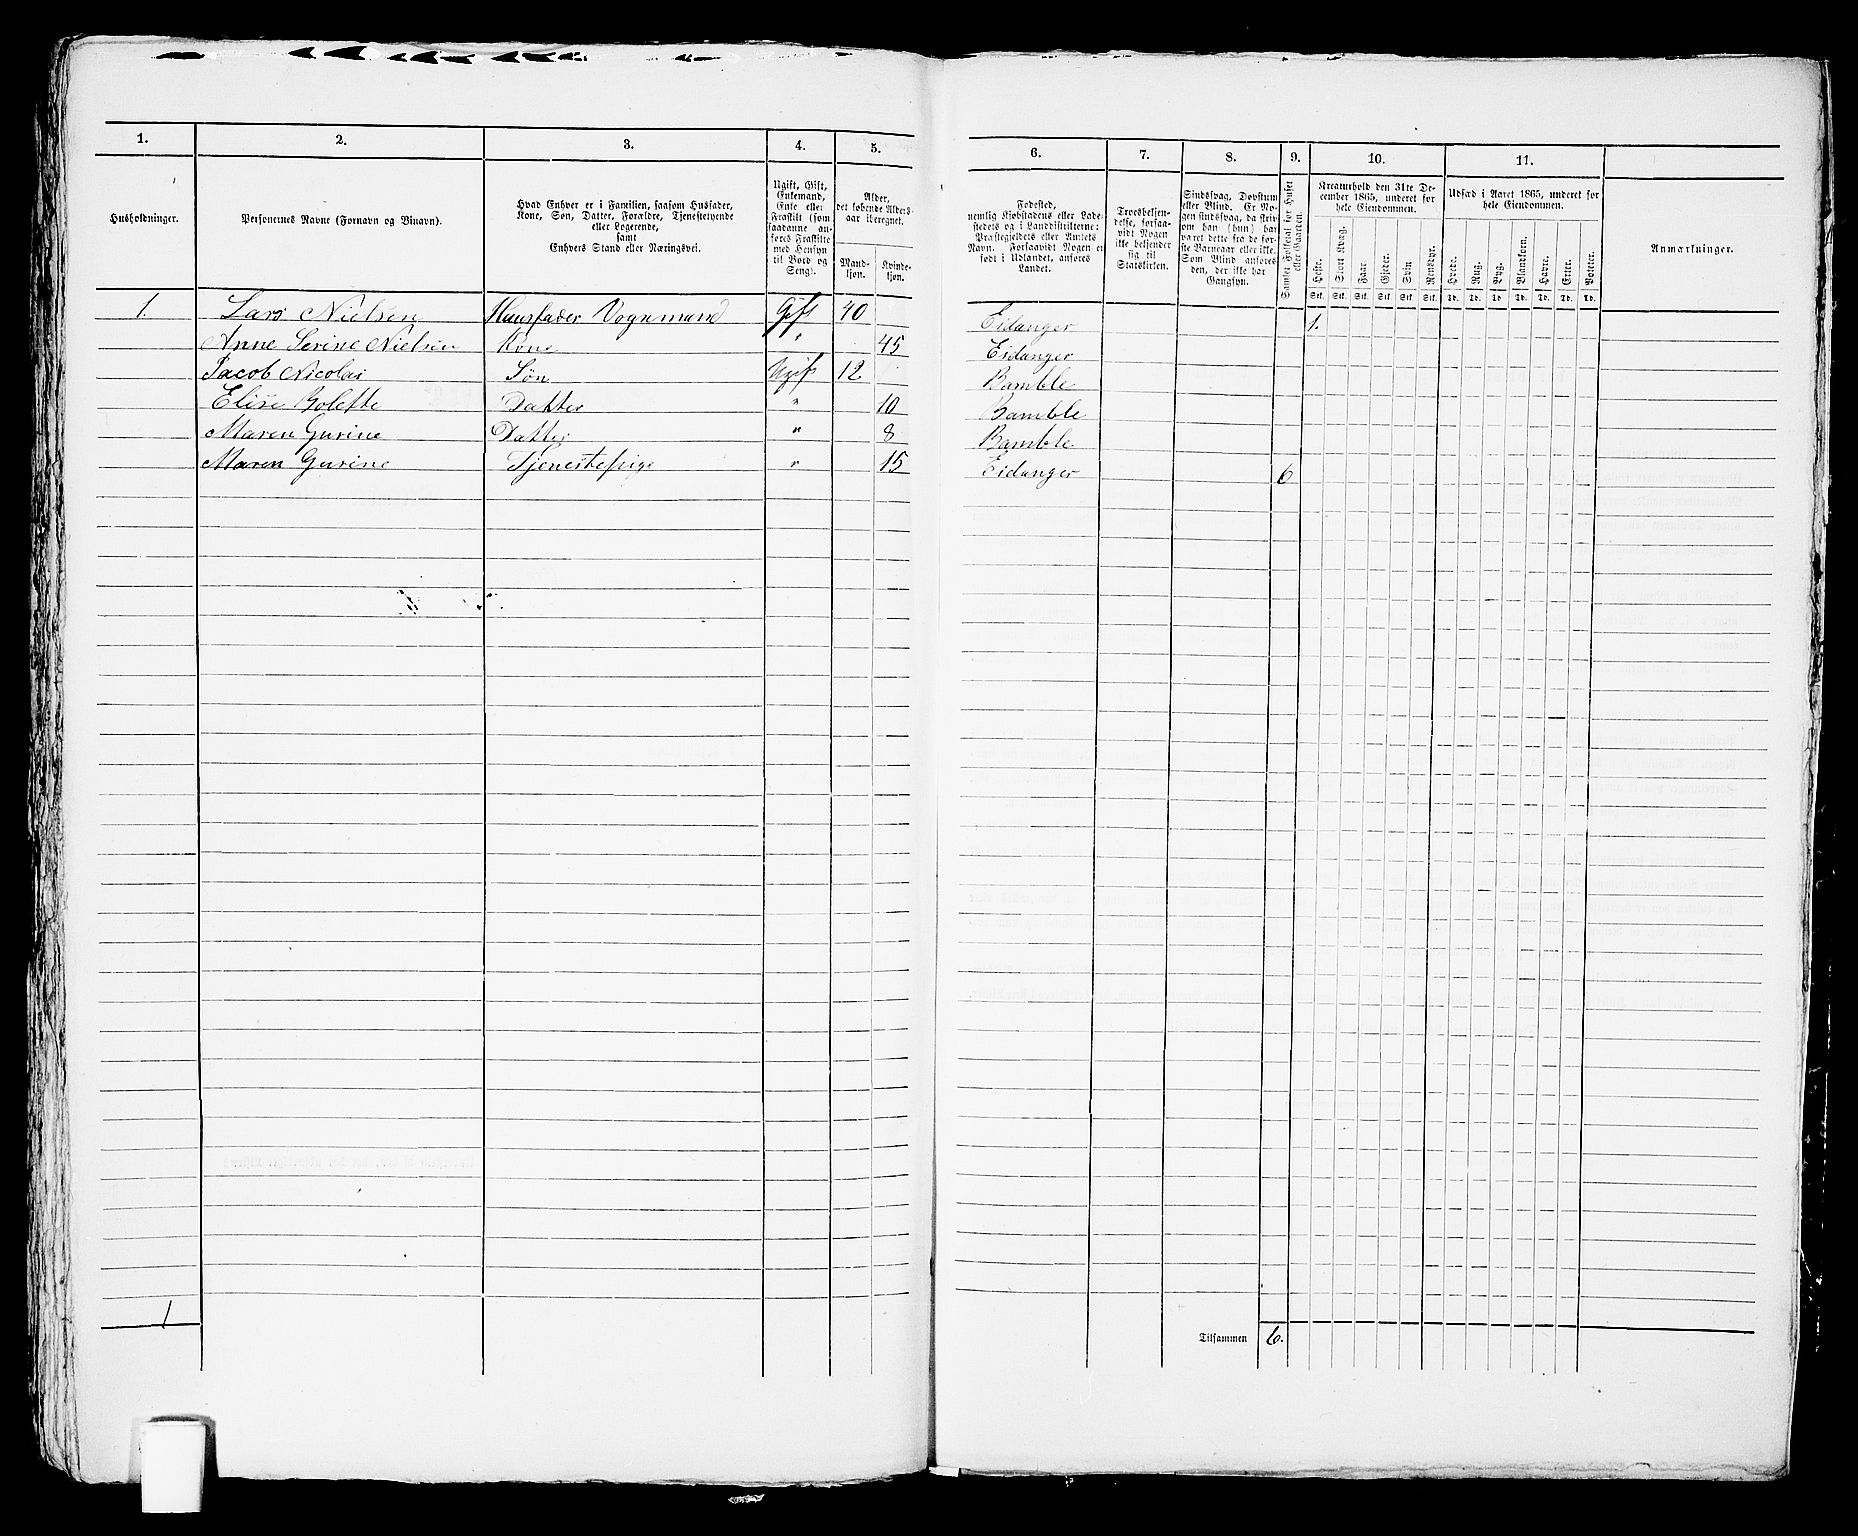 1. 2. 3. 4. 5. 6. 7. 8. 9. 10. 11.
Husholdninger.
Personernes Navne (Fornavn og Binavn).
Hvad Enhver er i Familien, saasom Husfader,
Kone, Søn, Datter, Forældre, Tjenestetyende
eller Logerende,
samt
Enhvers Stand eller Næringsvei.
Ugift, Gift,
Enkemand,
Enke eller
Fraskilt (som
saadanne an-
føres Fraskilte
med Hensyn
til Bord og
Seng).
Alder,
det løbende Alders-
aar iberegnet.
Mand-
kjøn.
Kvinde-
kjøn.
Fødested,
nemlig Kjøbstadens eller Lade-
stedets og i Landdistrikterne:
Præstegjeldets eller Amtets
Navn. Forsaavidt Nogen er
født i Udlandet, anføres
Landet.
Troesbekjen-
delse, forsaa-
vidt Nogen
ikke bekjender
sig til
Statskirken.
Sindssvag, Døvstum
eller Blind. Er No-
gen sindssvag, da skriv
om han (hun) har
været dette fra de før-
ste Barneaar eller ikke.
Som Blind anføres
den, der ikke har
Gangsyn.
Samlet Folketal for Huset
eller Gaarden.
Kreaturhold den 31te De-
cember 1865, underet for
hele Eiendommen.
Heste. Stort Kvæg. Faar. Gjeder. Svin Rensdyr.
Stk. Stk. Stk. Stk. Stk. Stk.
Udsæd i Aaret 1865, underet for
hele Eiendommen.
Hvede. Rug. Byg. Blandkorn. Havre. Erter. Poteter.
Td. Td. Td. Td. Td. Td. Td.
Anmærkninger.
1. Lars Nielsen Huusfader Vognmand Gift 40 Eidanger 1.
Anne Serine Nielsen Kone " 45 Eidanger
Jacob Nicolai Søn Ugift 12 Bamble
Elise Bolette Datter " 10 Bamble
Maren Gurine Datter " 8 Bamble
Maren Gurine Tjenestepige " 15 Eidanger 6
1
Tilsammen 6.